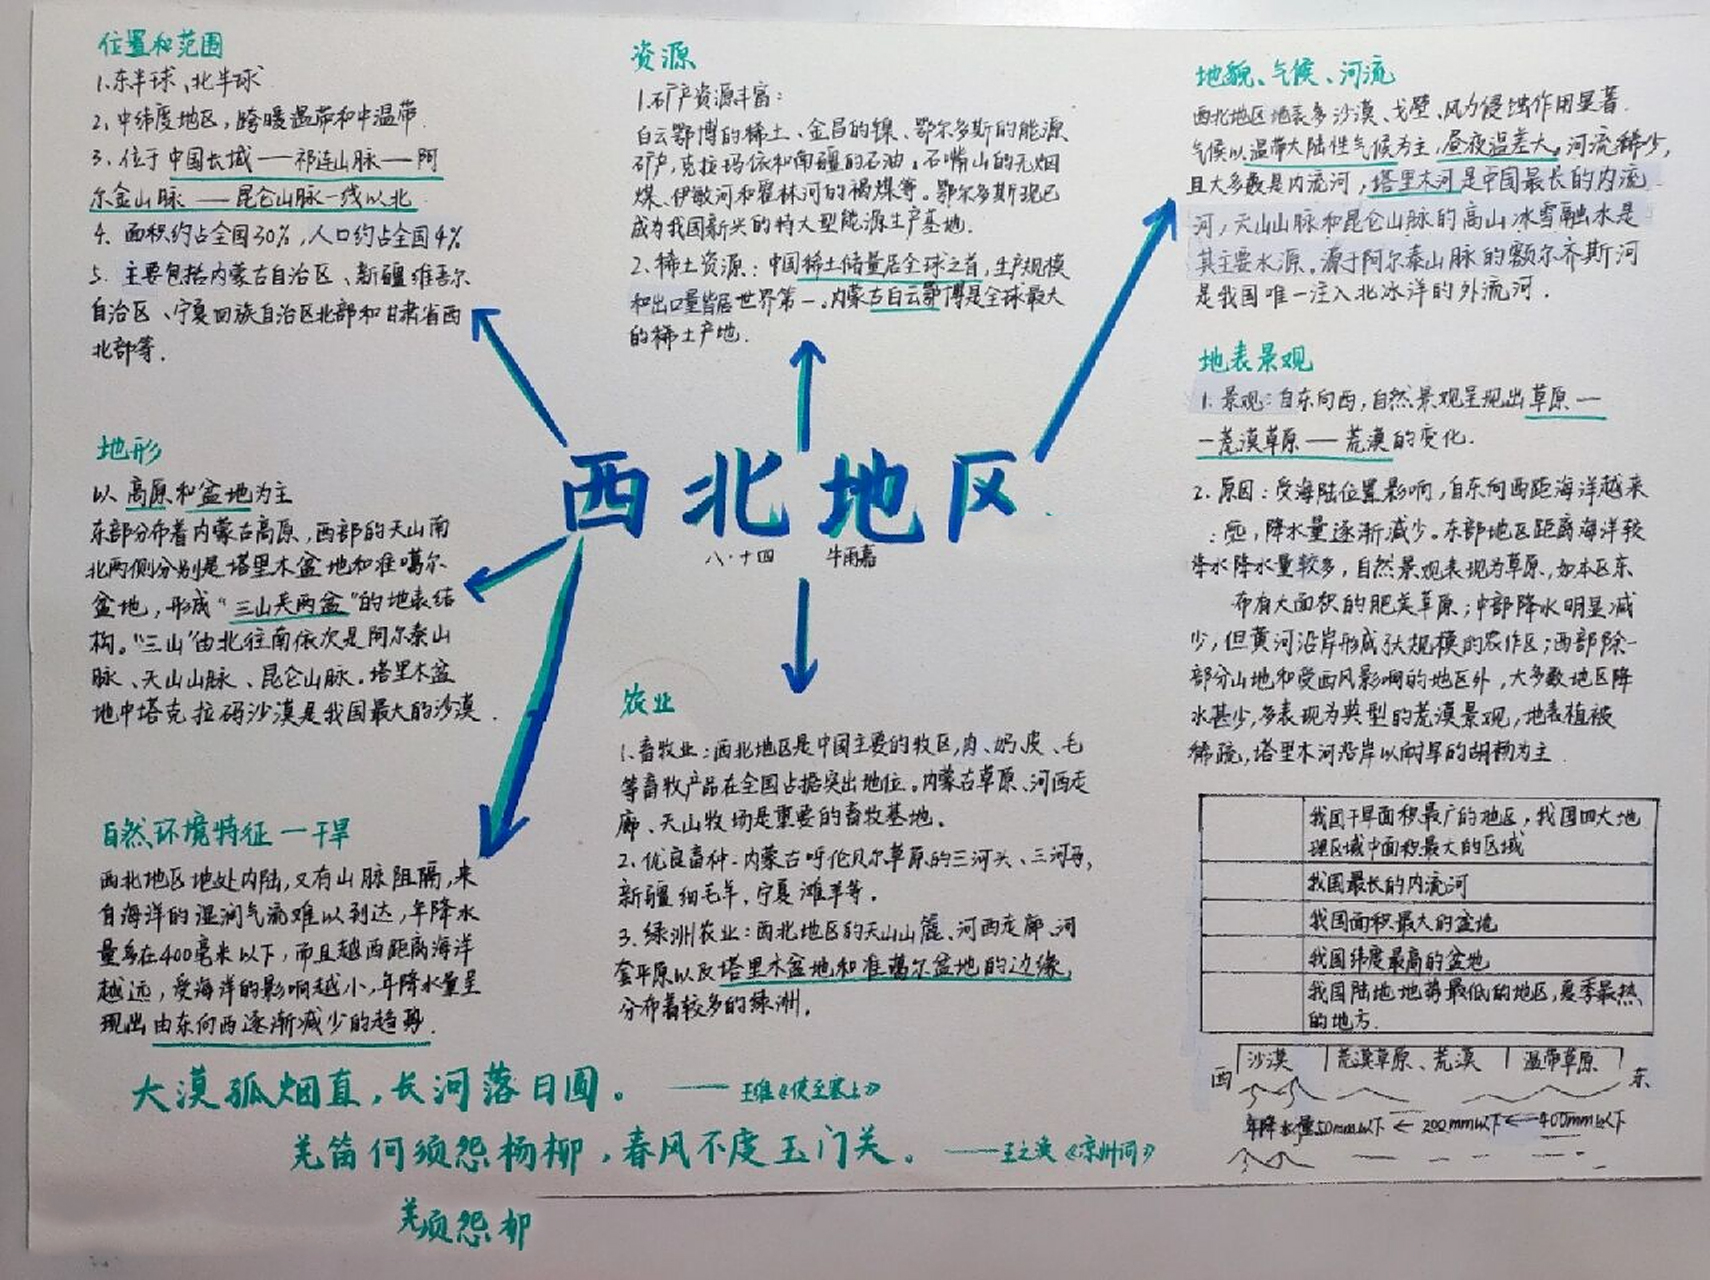 位置和范围
1.东半球、北半球
2.中纬度地区,跨暖温带和中温带.
3.位于中国长城——祁连山脉——阿
尔金山脉——昆仑山脉一线以北
4.面积约占全国30%,人口约占全国4%
5.主要包括内蒙古自治区、新疆维吾尔
自治区、宁夏回族自治区北部和甘肃省西
北部等.
地形
以高原和盆地为主
东部分布着内蒙古高原,西部的天山南
北两侧分别是塔里木盆地和准噶尔
盆地,形成“三山夹两盆”的地表结
构。“三山”由北往南依次是阿尔泰山
脉、天山山脉、昆仑山脉.塔里木盆
地中塔克拉码沙漠是我国最大的沙漠.
自然环境特征一干旱
西北地区地处内陆,又有山脉阻隔,来
自海洋的湿润气流难以到达,年降水
量多在400毫米以下,而且越西距离海洋
越远,受海洋的影响越小,年降水量呈
现出由东向西逐渐减少的趋势.
资源
1.矿产资源丰富:
白云鄂博的稀土、金昌的镍、鄂尔多斯的能源
矿产,克拉玛依和南疆的石油。石嘴山的无烟
煤、伊敏河和霍林河的褐煤等。鄂尔多斯现已
成为我国新兴的特大型能源生产基地.
2.稀土资源:中国稀土储量居全球之首,生产规模
和出口量皆居世界第一.内蒙古白云鄂博是全球最大
的稀土产地.
西北地区
八·十四 牛雨嘉
农业
1.畜牧业:西北地区是中国主要的牧区,肉、奶、皮、毛
等畜牧产品在全国占据突出地位。内蒙古草原、河西走
廊、天山牧场是重要的畜牧基地。
2.优良畜种-内蒙古呼伦贝尔草原的三河头、三河马,
新疆细毛羊,宁夏滩羊等.
3.绿洲农业:西北地区的天山山麓、河西走廊、河
套平原以及塔里木盆地和准噶尔盆地的边缘,
分布着较多的绿洲.
地貌、气候、河流
西北地区地表多沙漠、戈壁、风力侵蚀作用显著.
气候以温带大陆性气候为主,昼夜温差大。河流稀少,
且大多数是内流河,塔里木河是中国最长的内流
河,天山山脉和昆仑山脉的高山冰雪融水是
其主要水源。源于阿尔泰山脉的额尔齐斯河
是我国唯一注入北冰洋的外流河.
地表景观
1.景观:自东向西,自然景观呈现出草原—
—荒漠草原——荒漠的变化.
2.原因:受海陆位置影响,自东向西距海洋越来
,降水量逐渐减少。东部地区距离海洋较
降水降水量较多,自然景观表现为草原,如本区东
布有大面积的肥美草原;中部降水明显减
少,但黄河沿岸形成大规模的农作区;西部除一
部分山地和受西风影响的地区外,大多数地区降
水甚少,多表现为典型的荒漠景观,地表植被
稀疏,塔里木河沿岸以耐旱的胡杨为主.
我国干旱面积最广的地区,我国四大地
理区域中面积最大的区域
我国最长的内流河
我国面积最大的盆地
我国纬度最高的盆地
我国陆地地势最低的地区,夏季最热
的地方.
西 沙漠 荒漠草原、荒漠 温带草原 东
年降水量50mm以下←200mm以下←400mm以下
大漠孤烟直,长河落日圆。——王维《使至塞上》
羌笛何须怨杨柳,春风不度玉门关。——王之涣《凉州词》
羌须怨柳